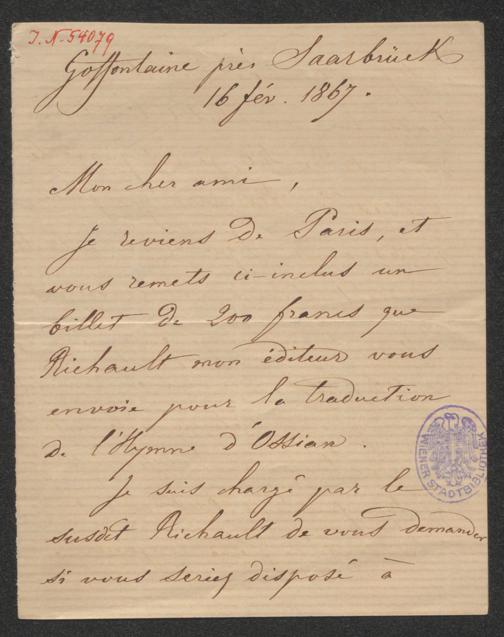 I.N.-54079
Goffontaine près Saarbrück
16 fév. 1867.
Mon cher ami,
Je reviens de Paris, et
vous remets ci-inclus un
billet de 200 francs que
Richault mon éditeur vous
envoie pour la traduction
de l'Hymne d'Ossian.
Je suis chargé par le
susdit Richault de vous demander
si vous seriez disposé à
WIENER STADTBIBLIOTHEK